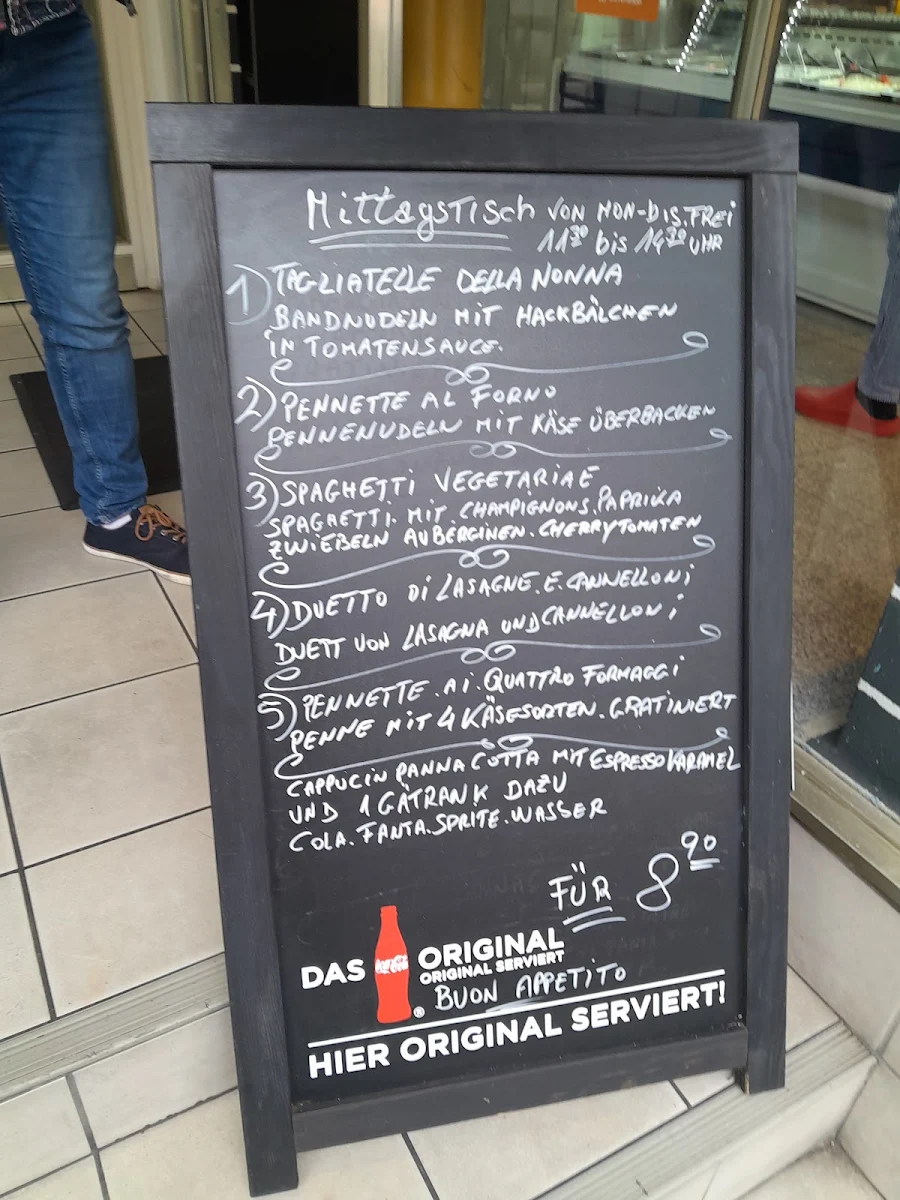 Mittagstisch VON MON-DIS.FREI
11³⁰ bis 14³⁰ UHR
1) TAGLIATELLE DELLA NONNA
BANDNUDELN MIT HACKBÄLCHEN
IN TOMATENSAUCE.
2) PENNETTE AL FORNO
PENNENUDELN MIT KÄSE ÜBERBACKEN
3) SPAGHETTI VEGETARIAE
SPAGHETTI. MIT CHAMPIGNONS.PAPRIKA
ZWIEBELN AUBERGINEN.CHERRYTOMATEN
4) DUETTO DI LASAGNE.E.CANNELLONI
DUETT VON LASAGNA UND CANNELLONI
5) PENNETTE.AI.QUATTRO FORMAGGI
PENNE MIT 4 KÄSESORTEN.GRATINIERT
CAPPUCIN PANNA COTTA MIT ESPRESSO KARAMEL
UND 1 GATRÄNK DAZU
COLA.FANTA.SPRITE.WASSER
FÜR 8⁹⁰
DAS Coca-Cola ORIGINAL
ORIGINAL SERVIERT
BUON APPETITO
HIER ORIGINAL SERVIERT!